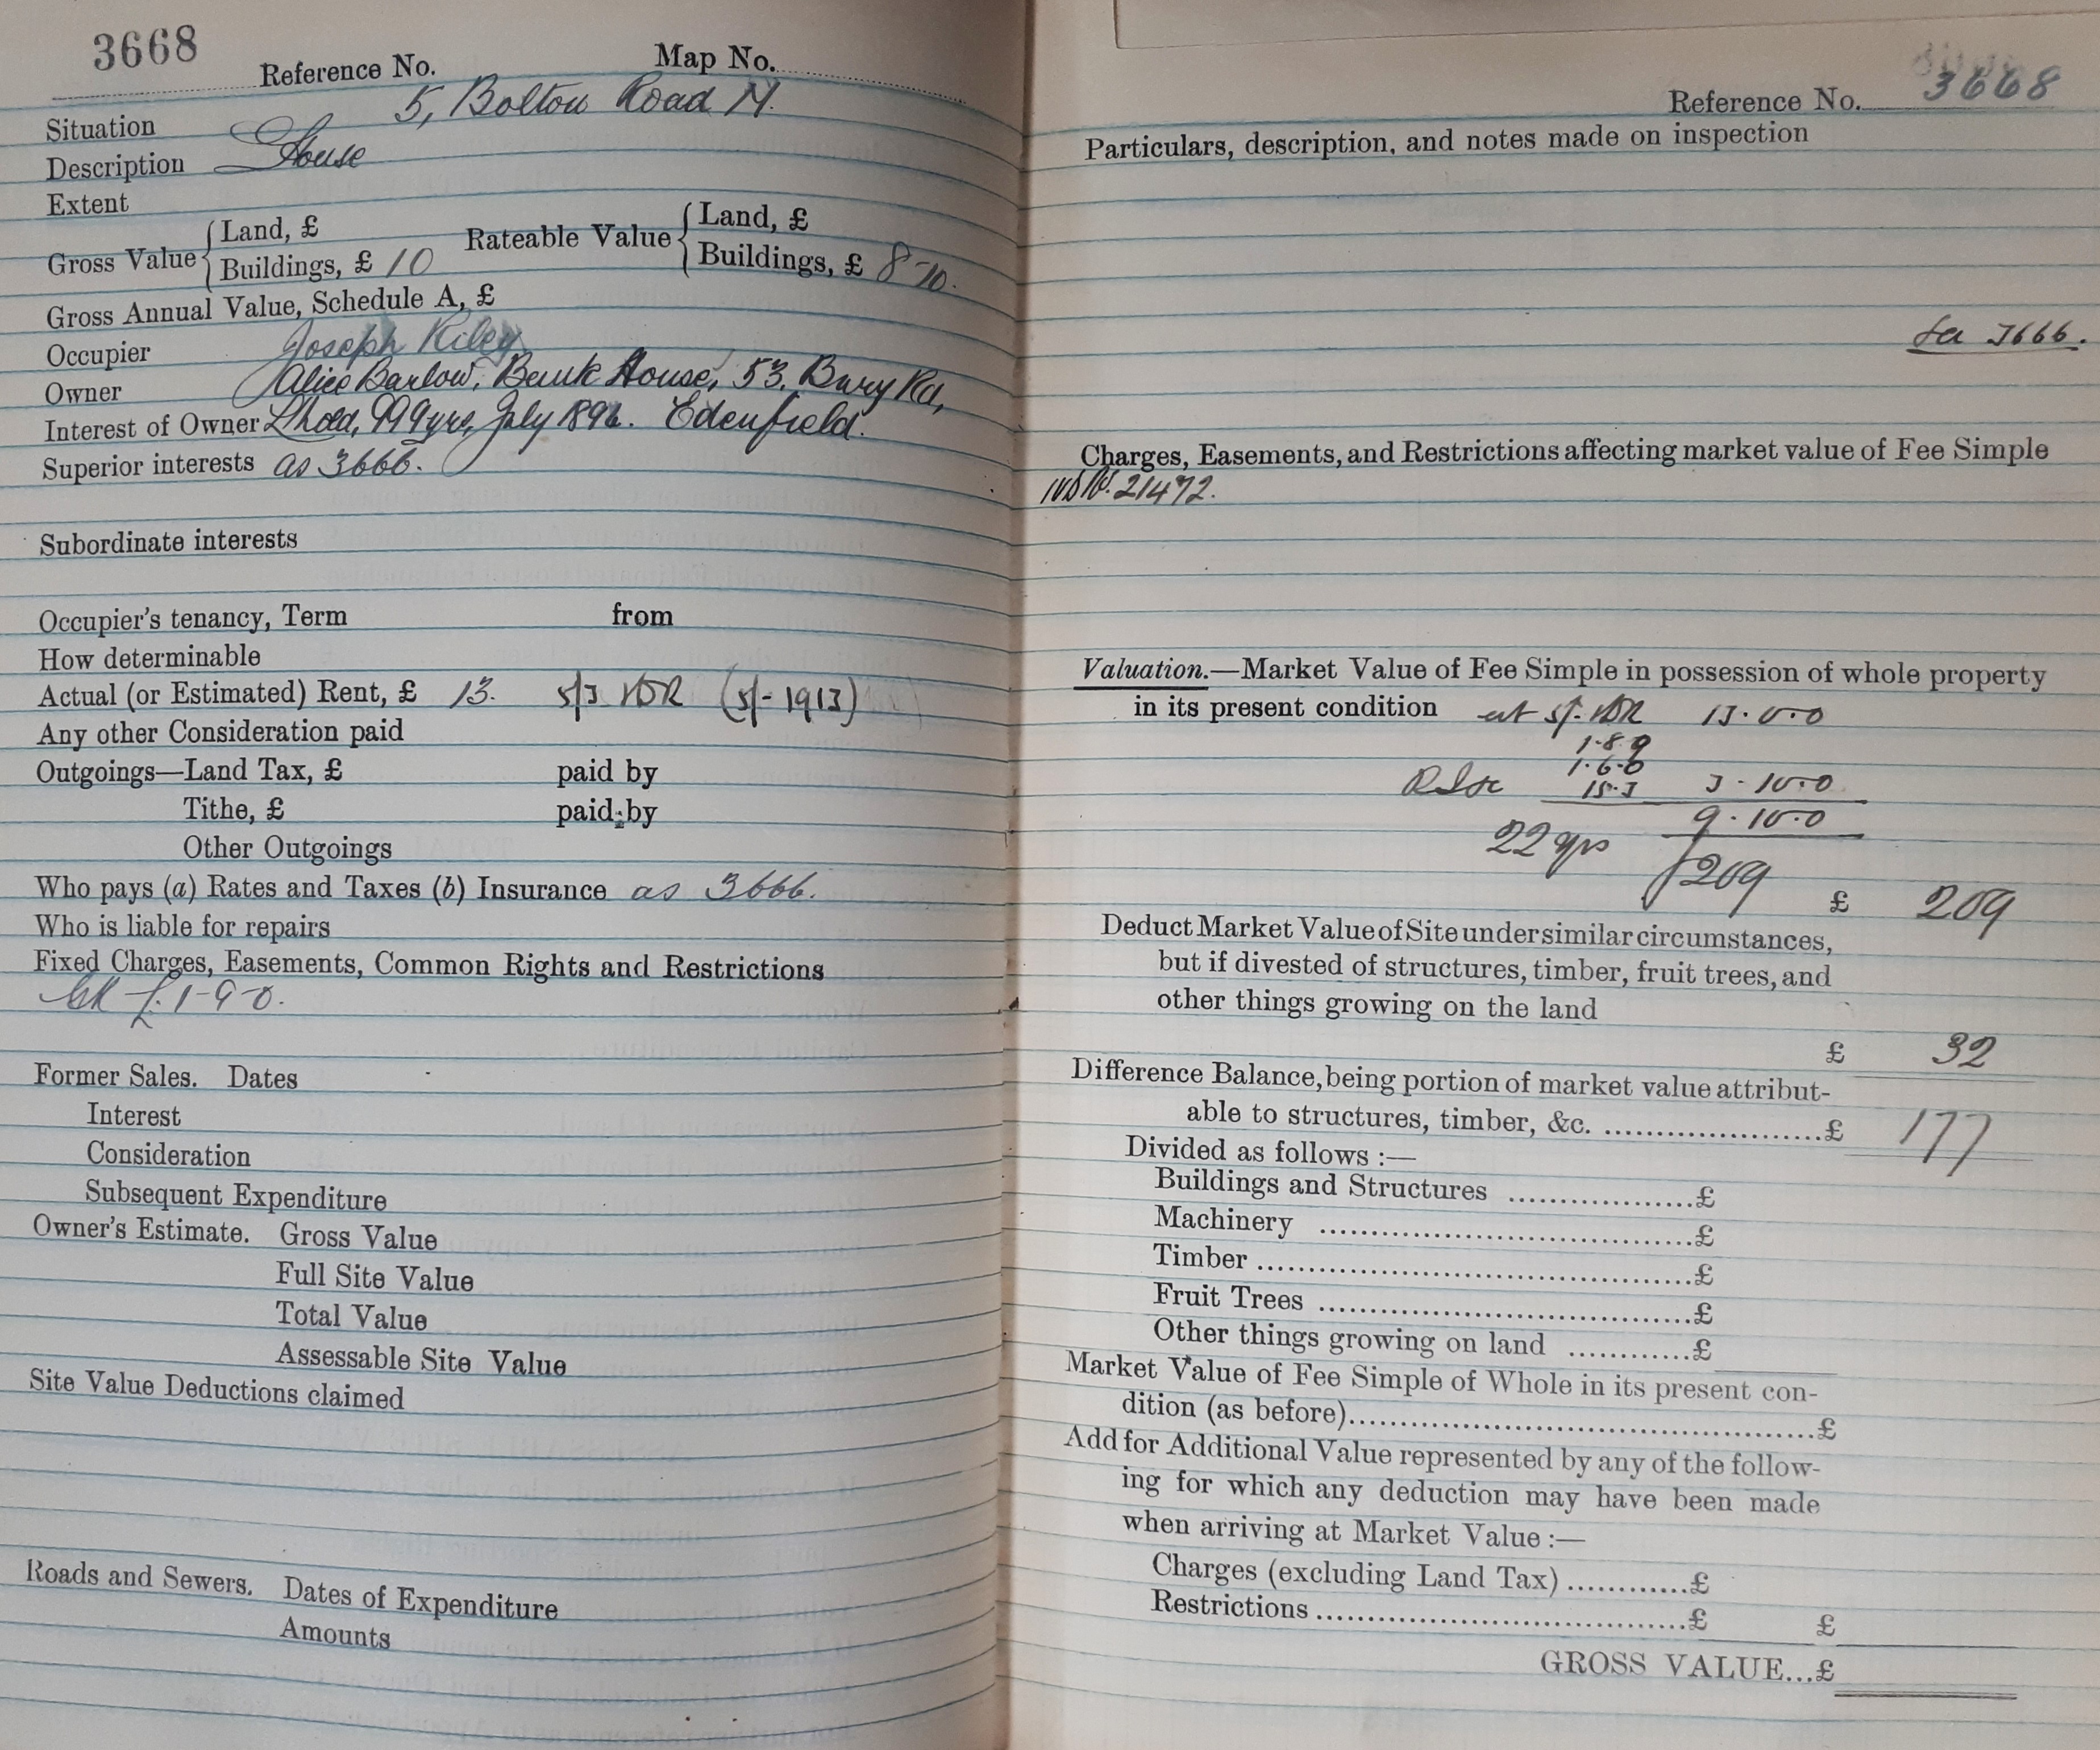 3668
Reference No. Map No.
Situation 5, Bolton Road N.
Description House
Extent
Gross Value { Land, £ Rateable Value { Land, £
Buildings, £ 10 Buildings, £ 8-10.
Gross Annual Value, Schedule A, £
Occupier Joseph Riley
Owner Alice Barlow, Bank House, 53, Bury Rd,
Interest of Owner Lhold, 999yrs, July 1896. Edenfield.
Superior interests as 3666.
Subordinate interests
Occupier's tenancy, Term from
How determinable
Actual (or Estimated) Rent, £ 13. 5/3 (5/- 1913)
Any other Consideration paid
Outgoings—Land Tax, £ paid by
Tithe, £ paid by
Other Outgoings
Who pays (a) Rates and Taxes (b) Insurance as 3666.
Who is liable for repairs
Fixed Charges, Easements, Common Rights and Restrictions
GR £1-9-0.
Former Sales. Dates
Interest
Consideration
Subsequent Expenditure
Owner's Estimate. Gross Value
Full Site Value
Total Value
Assessable Site Value
Site Value Deductions claimed
Roads and Sewers. Dates of Expenditure
Amounts
Reference No. 3668
Particulars, description, and notes made on inspection
3666.
Charges, Easements, and Restrictions affecting market value of Fee Simple
21472.
Valuation.—Market Value of Fee Simple in possession of whole property
in its present condition at 5/- 13.0.0
1.8.9
1.6.0
15.3 3.10.0
9.10.0
22 yrs £209 £ 209
Deduct Market Value of Site under similar circumstances,
but if divested of structures, timber, fruit trees, and
other things growing on the land
£ 32
Difference Balance, being portion of market value attribut-
able to structures, timber, &c. ......................£ 177
Divided as follows :—
Buildings and Structures ..................£
Machinery .....................................£
Timber ...........................................£
Fruit Trees .....................................£
Other things growing on land ............£
Market Value of Fee Simple of Whole in its present con-
dition (as before)...............................................£
Add for Additional Value represented by any of the follow-
ing for which any deduction may have been made
when arriving at Market Value :—
Charges (excluding Land Tax) ............£
Restrictions .....................................£ £
GROSS VALUE...£